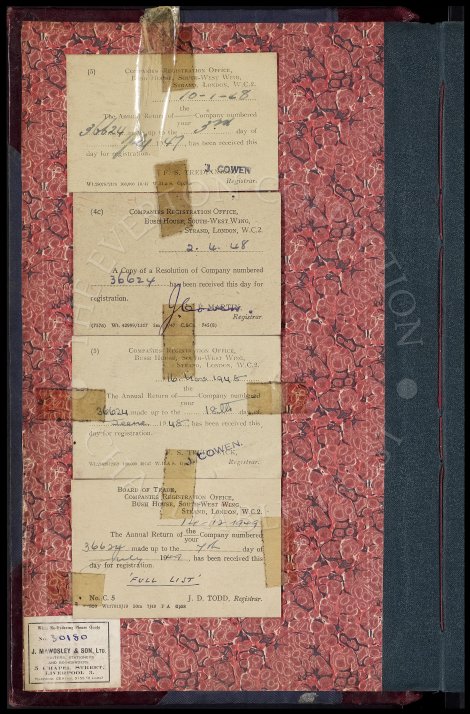 (5)
COMPANIES REGISTRATION OFFICE,
BUSH HOUSE, SOUTH-WEST WING,
STRAND, LONDON, W.C.2.
10-1-48
the
The Annual Return of Company numbered
your
36624 made up to the 3rd day of
July 1947, has been received this
day for registration.
J. COWEN
Registrar.
(4c)
COMPANIES REGISTRATION OFFICE,
BUSH HOUSE, SOUTH-WEST WING,
STRAND, LONDON, W.C.2.
2. 4. 48
A Copy of a Resolution of Company numbered
36624 has been received this day for
registration.
MARTIN,
Registrar
(5)
COMPANIES REGISTRATION OFFICE,
BUSH HOUSE, SOUTH-WEST WING,
STRAND, LONDON, W.C.2.
1948
the
The Annual Return of Company numbered
your
36624 made up to the 18th day of
1948 has been received this
day for registration.
J. COWEN.
Registrar.
BOARD OF TRADE,
COMPANIES REGISTRATION OFFICE,
BUSH HOUSE, SOUTH-WEST WING,
STRAND, LONDON, W.C.2.
14-12-1949
the
The Annual Return of Company numbered
your
36624 made up to the 7th day of
July 1949, has been received this
day for registration.
FULL LIST
No. C. 5 J. D. TODD, Registrar.
When Re-Ordering Please Quote
No. 30180
J. MAWDSLEY & SON, LTD.
PRINTERS, STATIONERS
AND BOOKBINDERS,
5 CHAPEL STREET,
LIVERPOOL 3.